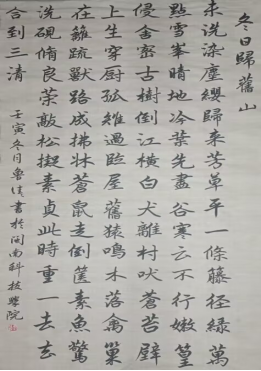 冬日歸舊山
未洗染塵纓歸來芳草平一條藤徑綠萬
點雪峯晴地冷葉先盡谷寒云不行嫩篁
侵舍密古樹倒江橫白犬離村吠蒼苔壁
上生穿厨孤雉過臨屋舊猿鳴木落禽巢
在籬疏獸路成拂牀蒼鼠走倒篋素魚驚
洗硯脩良策敲松擬素貞此時重一去去
合到三清
壬寅冬月魯佳書於閩南科技學院